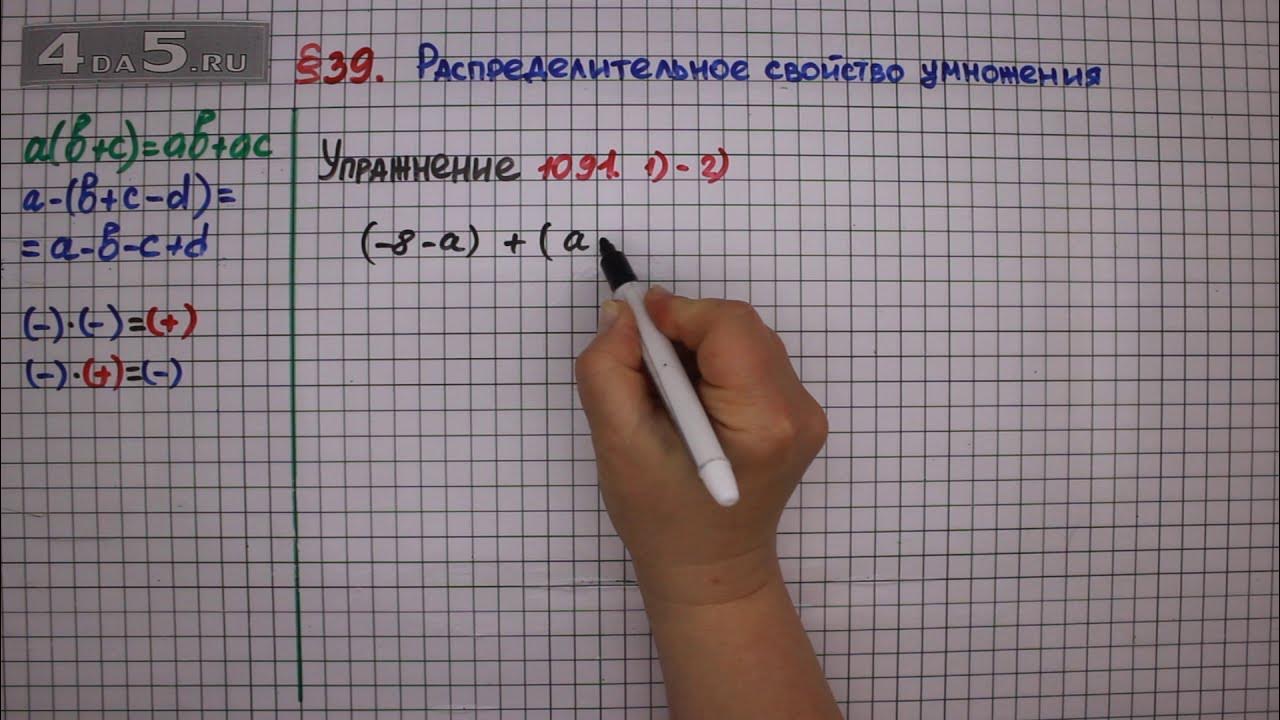 4DA5.RU
§39. Распределительное свойство умножения
a(b+c)=ab+ac
a-(b+c-d)=
=a-b-c+d
(-)·(-)=(+)
(-)·(+)=(-)
Упражнение 1091. 1)-2)
(-8-a) + (a